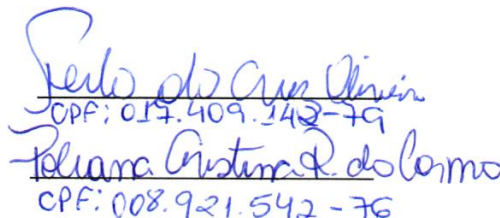 do Cruz Oliveira
CPF: 017.409.142-79
Poliana Cristina R. do Carmo
CPF: 008.921.542-76